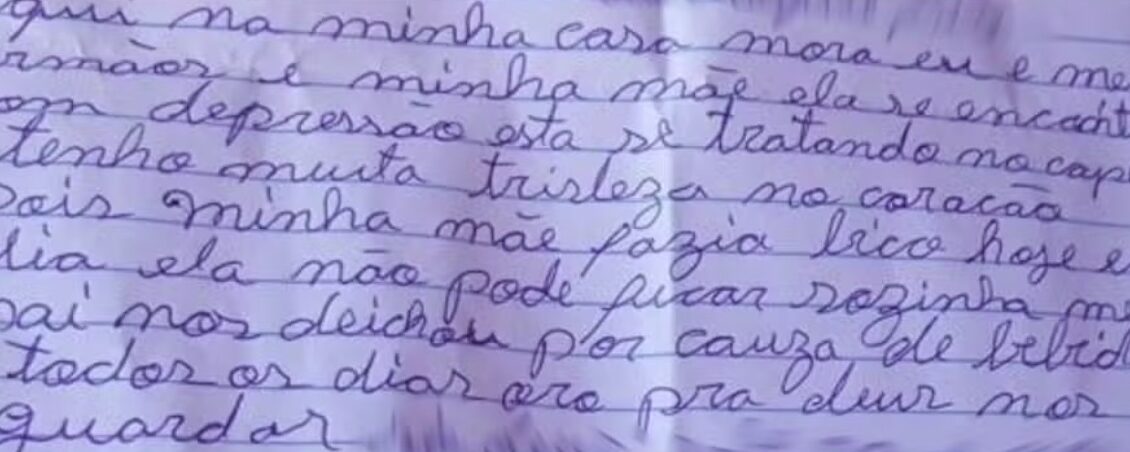 qui na minha casa mora eu e me
rmãos e minha mãe ela se encocht
om depressão esta se tratando no cap
tenho muita tristeza no coracão
pois minha mãe fazia bico hoje e
dia ela não pode ficar sozinha me
pai nos deichou por cauza de bebid
todos os dias oro pra deus nos
guardar